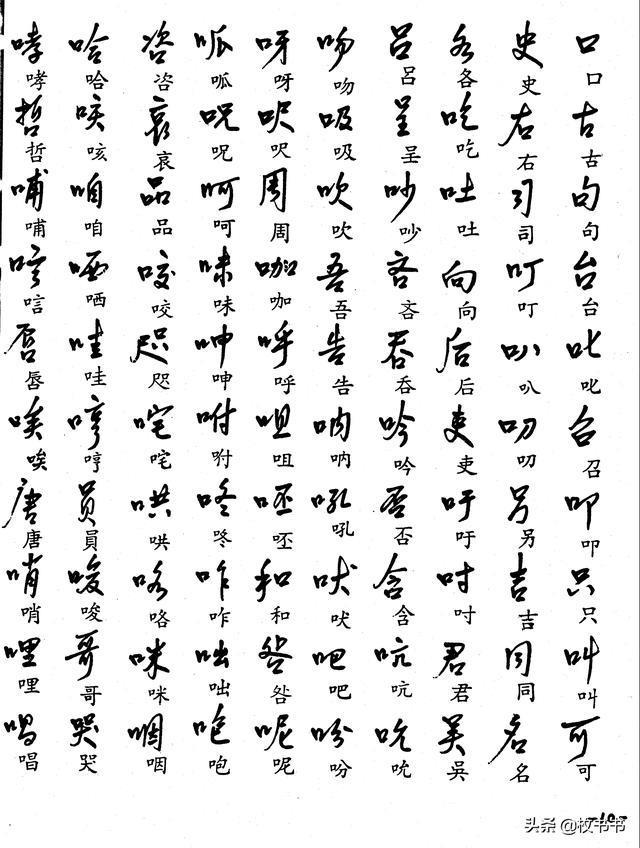 口口古古句句台台叱叱召召叩叩只只叫叫可可
史史右右司司叮叮叭叭叨叨另另吉吉同同名名
各各吃吃吐吐向向后后吏吏吁吁吋吋君君吳吳
呂呂呈呈吵吵吝吝吞吞吟吟否否含含吭吭吮吮
吻吻吸吸吹吹吾吾告告呐呐吼吼吠吠吧吧吩吩
呀呀呎呎周周咖咖呼呼咀咀呸呸和和咎咎呢呢
呱呱呪呪呵呵味味呻呻咐咐咚咚咋咋咄咄咆咆
咨咨哀哀品品咬咬咫咫咤咤哄哄咯咯咪咪咽咽
哈哈咳咳咱咱哂哂哇哇哼哼員員唆唆哥哥哭哭
哮哮哲哲哺哺唁唁唇唇唉唉唐唐哨哨哩哩唱唱
-10-
头条 @枚书书